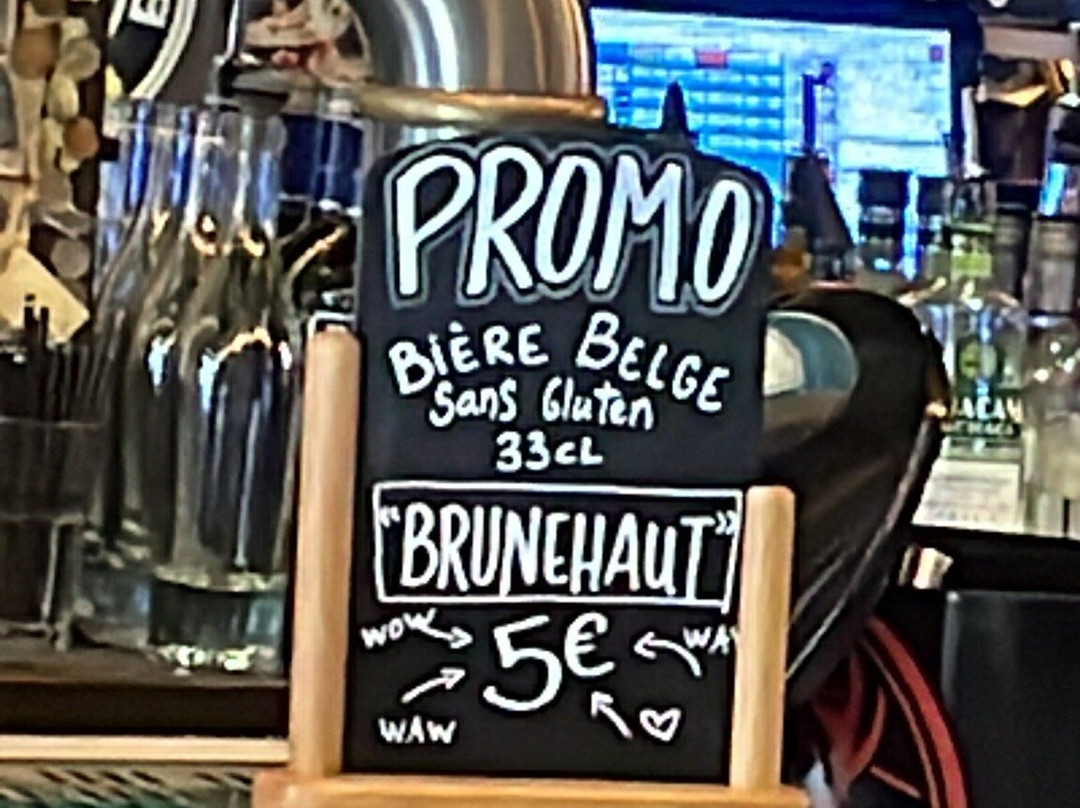 PROMO
BIÈRE BELGE
Sans Gluten
33cL
"BRUNEHAUT"
WOW 5€
WAW